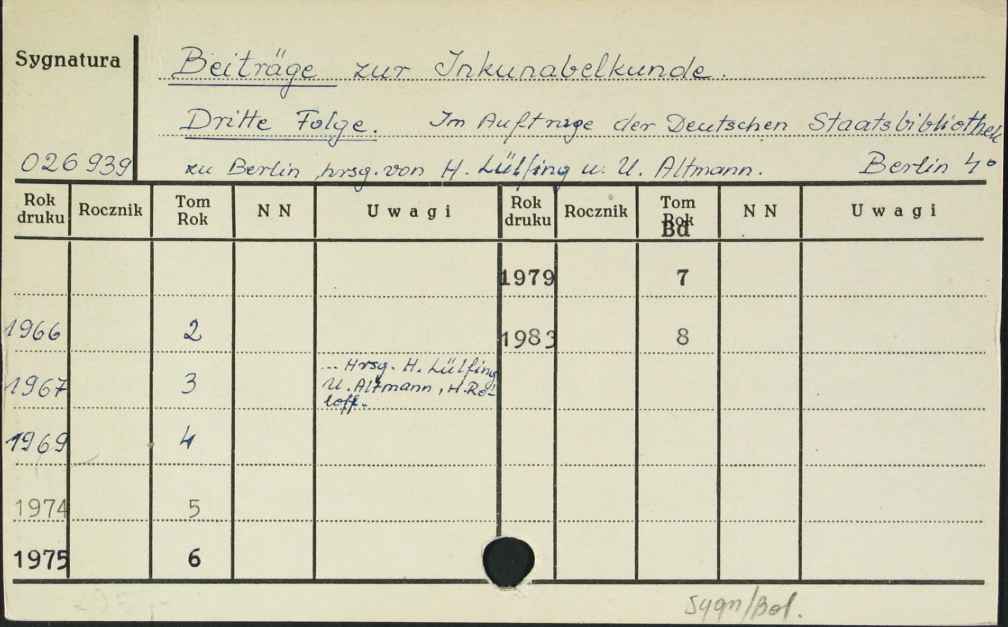 Sygnatura
Beiträge zur Inkunabelkunde.
Dritte Folge. Im Auftrage der Deutschen Staatsbibliothek
026939 zu Berlin hrsg. von H. Lülfing u. U. Altmann. Berlin 4°
Rok druku Rocznik Tom Rok NN Uwagi Rok druku Rocznik Tom Rok Bd NN Uwagi
1979 7
1966 2 1983 8
1967 3 ... Hrsg. H. Lülfing
U. Altmann, H. Ro-
loff.
1969 4
1974 5
1975 6
Sygn/Bol.